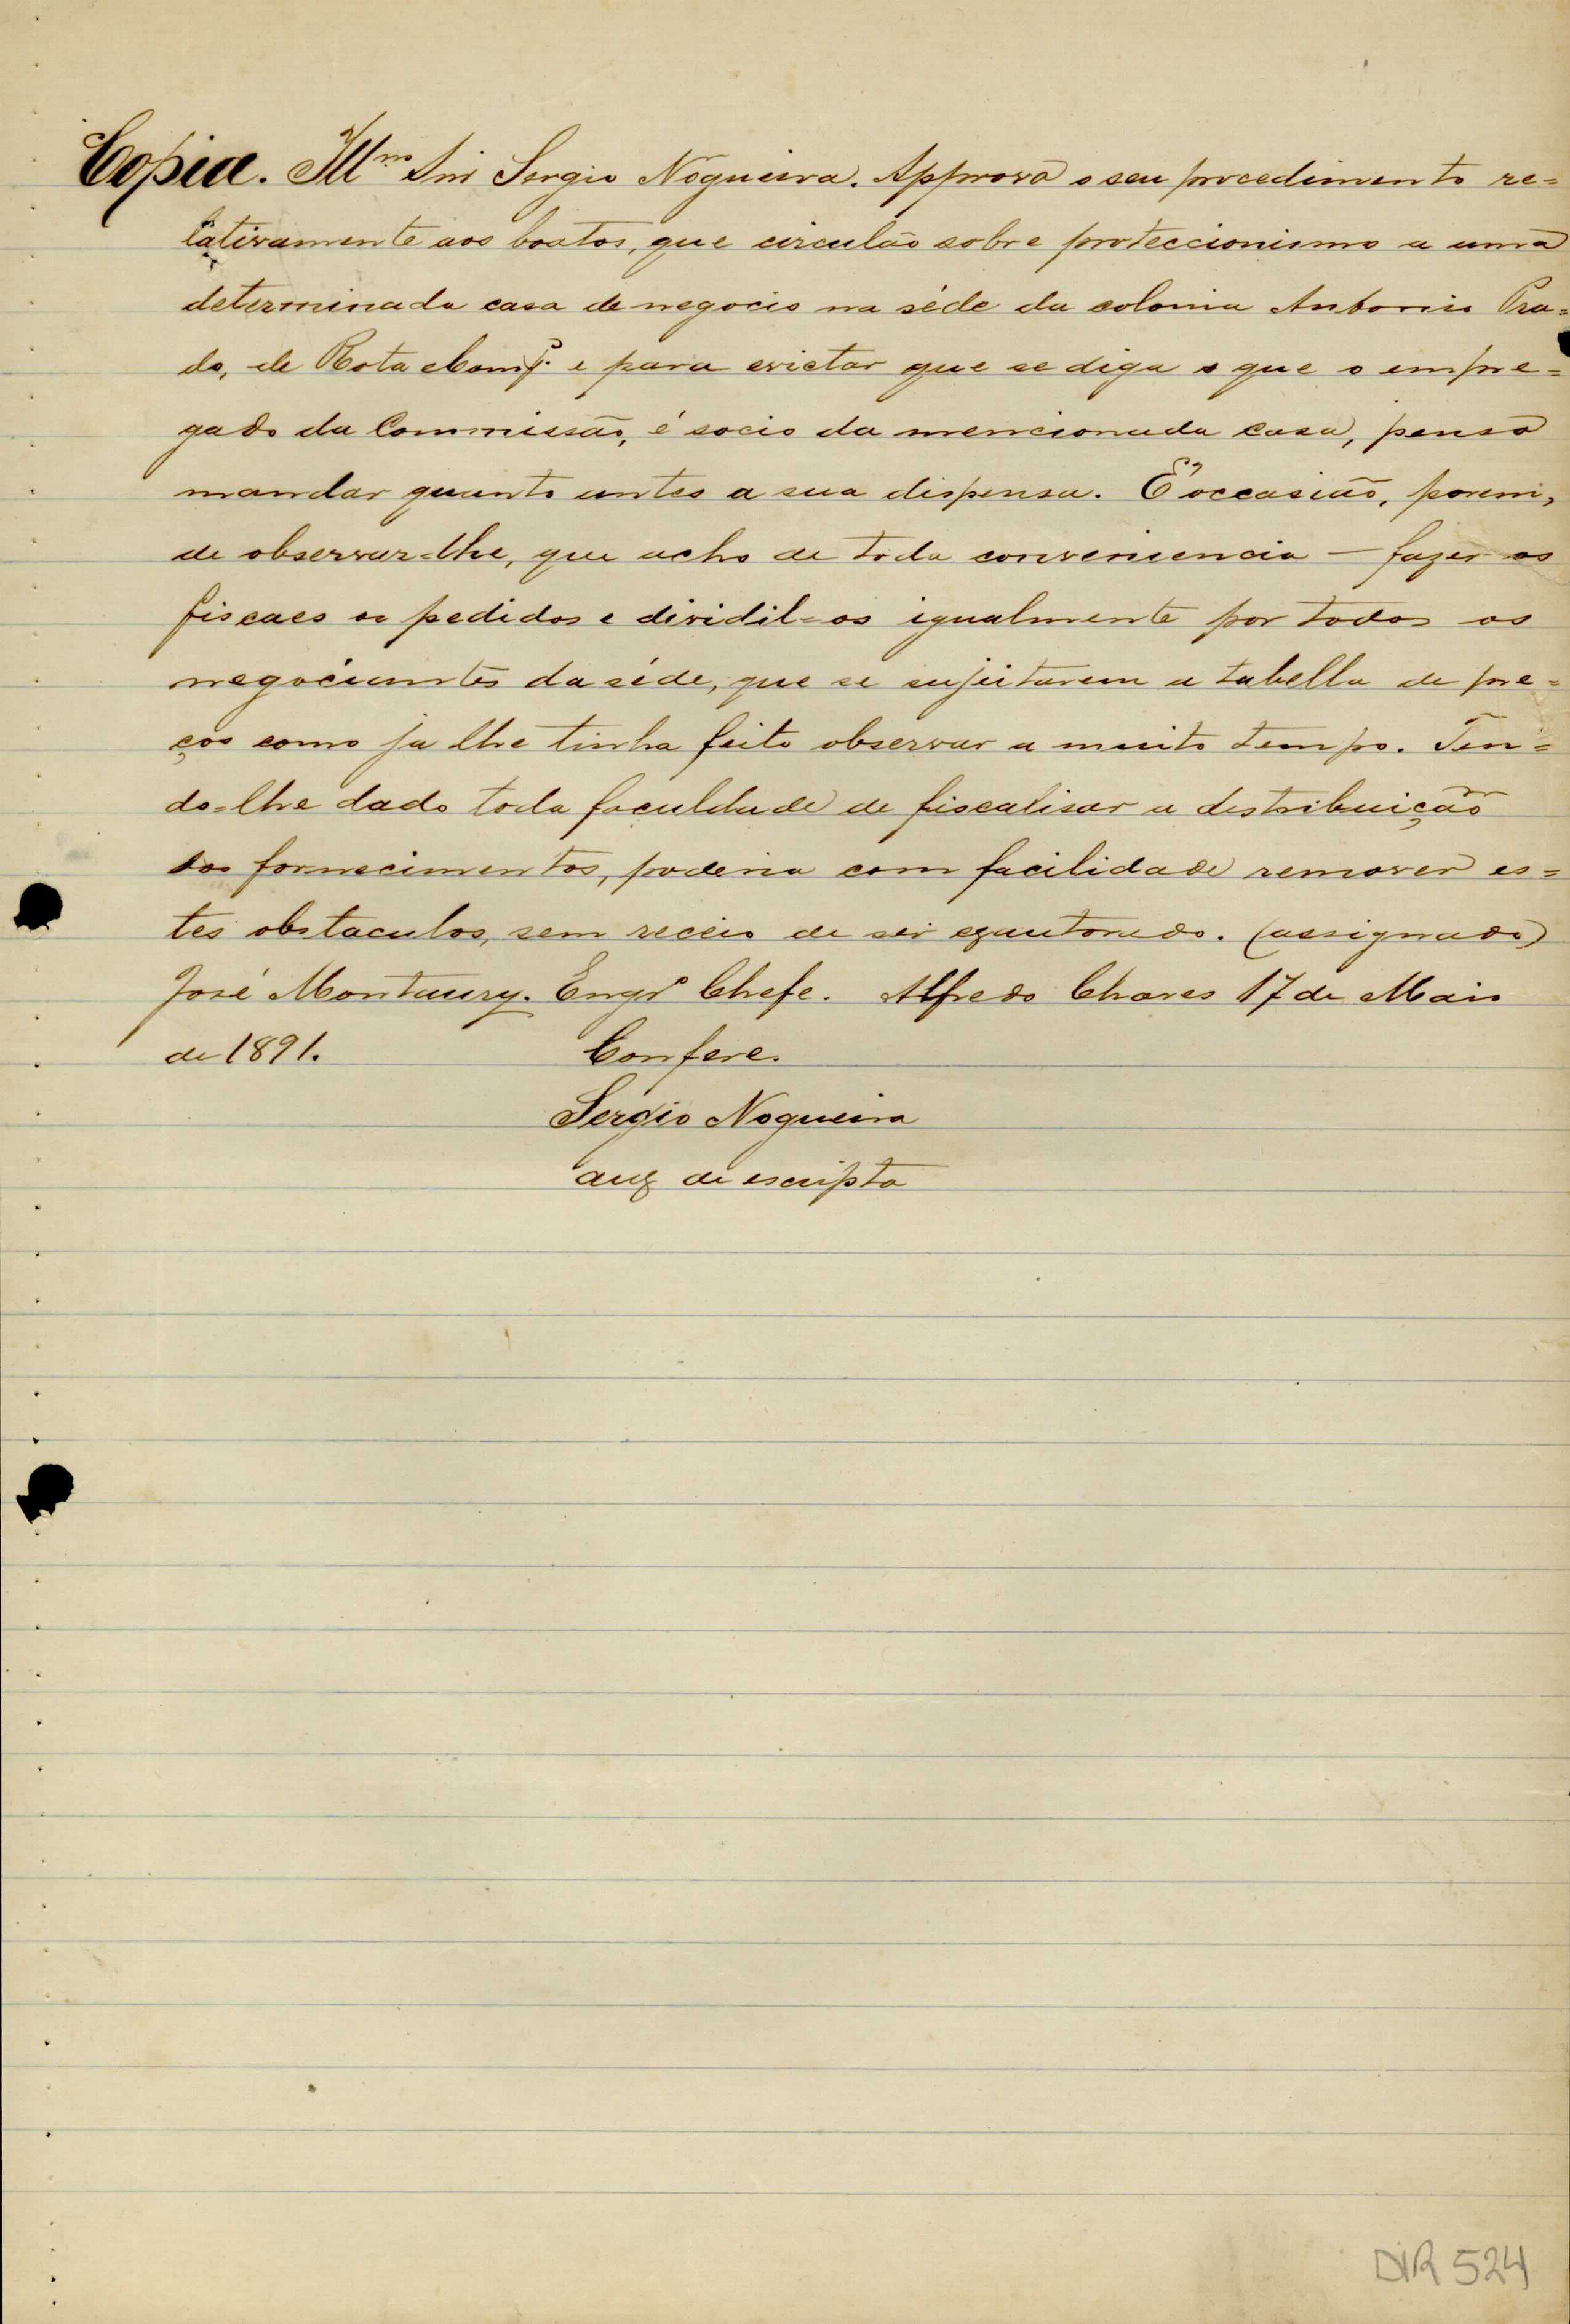 Copia. Ill.mo Snr Sergio Nogueira. Approvo o seu procedimento re=
lativamente aos boatos, que circulão sobre proteccionismo a uma
determinada casa de negocio na séde da colonia Antonio Pra=
do, de Rota & Comp.ª e para evictar que se diga o que o empre=
gado da Commissão, é socio da mencionada casa, penso
mandar quanto antes a sua dispensa. É occasião, porem,
de observar-lhe, que acho de toda conveniencia — fazer os
fiscaes os pedidos e dividil-os igualmente por todos os
negociantes da séde, que se sujeitarem a tabella de pre=
ços como ja lhe tinha feito observar a muito tempo. Ten=
do-lhe dado toda faculdade de fiscalisar a destribuição
dos fornecimentos, poderia com facilidade remover es=
tes obstaculos, sem receio de ser exautorado. (assignado)
José Montaury. Engrº Chefe. Alfredo Chaves 17 de Maio
de 1891. Confere.
Sergio Nogueira
aux de escripta
DIR 524